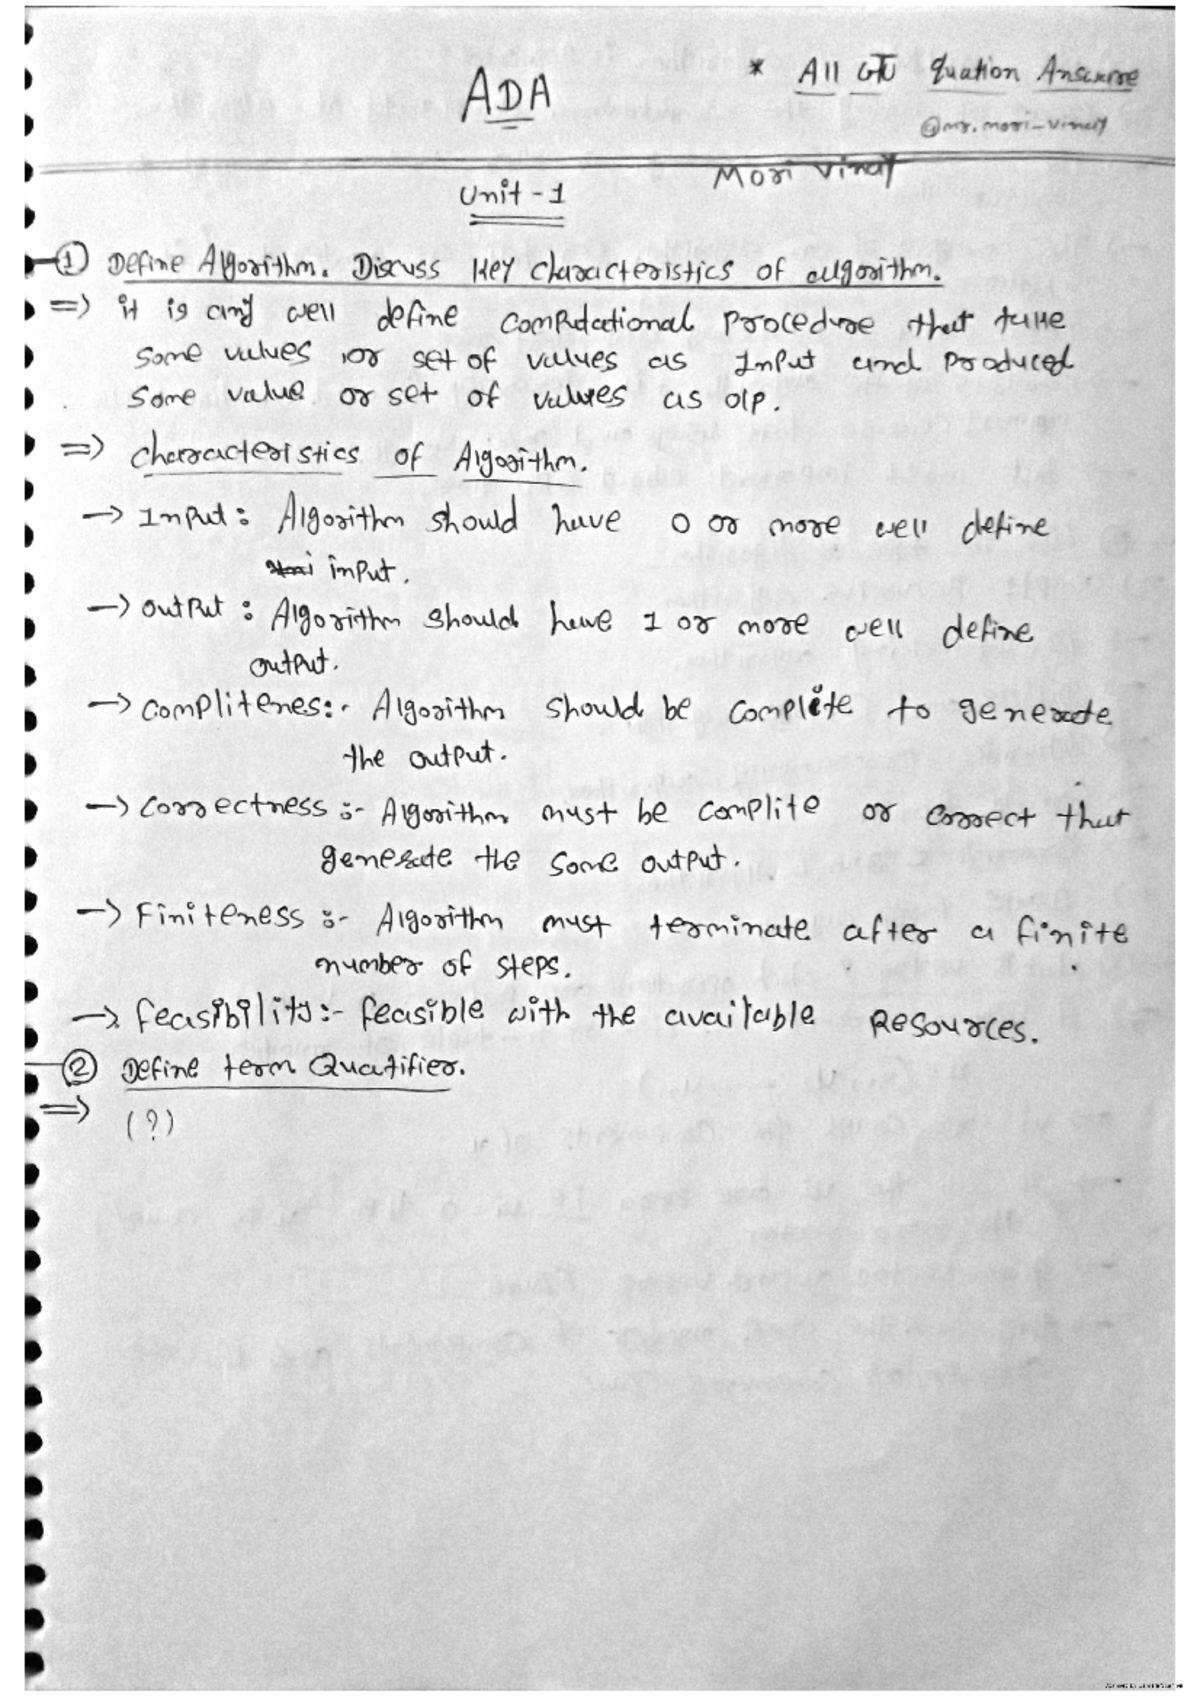 ADA
* All GTU Quation Ansurre
@mr.mori_vinay
Mori Vinay
Unit - 1
① Define Algorithm. Discuss Key characteristics of algorithm.
=> it is any well define computational procedure that take
some values or set of values as Input and produced
some value or set of values as o/p.
=> characteristics of Algorithm.
-> Input : Algorithm should have 0 or more well define
input.
-> output : Algorithm should have 1 or more well define
output.
-> complitenes:- Algorithm should be complete to generate
the output.
-> correctness :- Algorithm must be complite or correct that
generate the some output.
-> Finiteness :- Algorithm must terminate after a finite
number of steps.
-> feasibility:- feasible with the available Resources.
② Define term Quatifier.
=> (?)